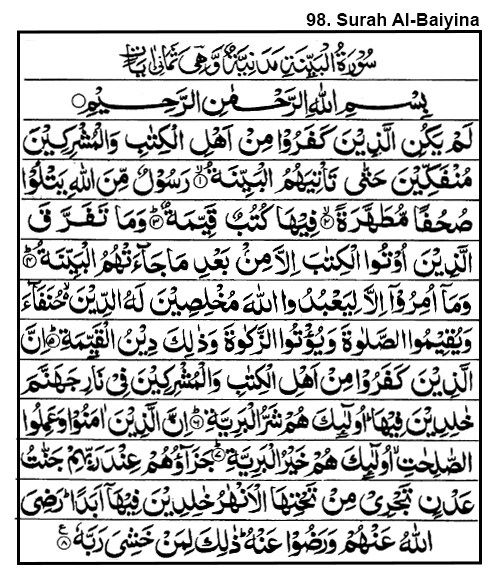 98. Surah Al-Baiyina
سُوْرَةُ الْبَيِّنَةِ مَدَنِيَّةٌ وَّهِىَ ثَمَانِىْ اٰيَاتٍ
بِسْمِ اللّٰهِ الرَّحْمٰنِ الرَّحِيْمِ ○
لَمْ يَكُنِ الَّذِيْنَ كَفَرُوْا مِنْ اَهْلِ الْكِتٰبِ وَالْمُشْرِكِيْنَ
مُنْفَكِّيْنَ حَتّٰى تَاْتِيَهُمُ الْبَيِّنَةُ ۙ﴿۱﴾ رَسُوْلٌ مِّنَ اللّٰهِ يَتْلُوْا
صُحُفًا مُّطَهَّرَةً ۙ﴿۲﴾ فِيْهَا كُتُبٌ قَيِّمَةٌ ؕ﴿۳﴾ وَمَا تَفَرَّقَ
الَّذِيْنَ اُوْتُوا الْكِتٰبَ اِلَّا مِنْۢ بَعْدِ مَا جَآءَتْهُمُ الْبَيِّنَةُ ؕ﴿۴﴾
وَمَاۤ اُمِرُوْۤا اِلَّا لِيَعْبُدُوا اللّٰهَ مُخْلِصِيْنَ لَهُ الدِّيْنَ ۙ حُنَفَآءَ
وَيُقِيْمُوا الصَّلٰوةَ وَيُؤْتُوا الزَّكٰوةَ وَذٰلِكَ دِيْنُ الْقَيِّمَةِ ؕ﴿۵﴾ اِنَّ
الَّذِيْنَ كَفَرُوْا مِنْ اَهْلِ الْكِتٰبِ وَالْمُشْرِكِيْنَ فِىْ نَارِ جَهَنَّمَ
خٰلِدِيْنَ فِيْهَا ؕ اُولٰٓئِكَ هُمْ شَرُّ الْبَرِيَّةِ ؕ﴿۶﴾ اِنَّ الَّذِيْنَ اٰمَنُوْا وَعَمِلُوا
الصّٰلِحٰتِ ۙ اُولٰٓئِكَ هُمْ خَيْرُ الْبَرِيَّةِ ؕ﴿۷﴾ جَزَآؤُهُمْ عِنْدَ رَبِّهِمْ جَنّٰتُ
عَدْنٍ تَجْرِىْ مِنْ تَحْتِهَا الْاَنْهٰرُ خٰلِدِيْنَ فِيْهَاۤ اَبَدًا ؕ رَضِىَ
اللّٰهُ عَنْهُمْ وَرَضُوْا عَنْهُ ؕ ذٰلِكَ لِمَنْ خَشِىَ رَبَّهٗ ﴿۸﴾ ع